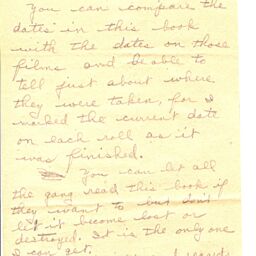 You can compare the
dates in this book
with the dates on those
films and be able to
tell just about where
they were taken, for I
marked the current date
on each roll as it
was finished.
You can let all
the gang read this book if
they want to but don't
let it become lost or
destroyed. It is the only one
I can get.
regards